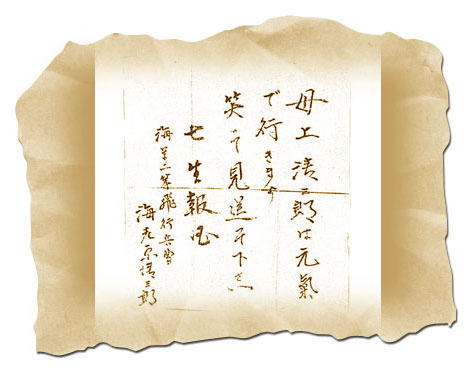 母上 清三郎は元氣
で行きます
笑つて見送つて下さい
七生報国
海軍二等飛行兵曹
海老原清三郎